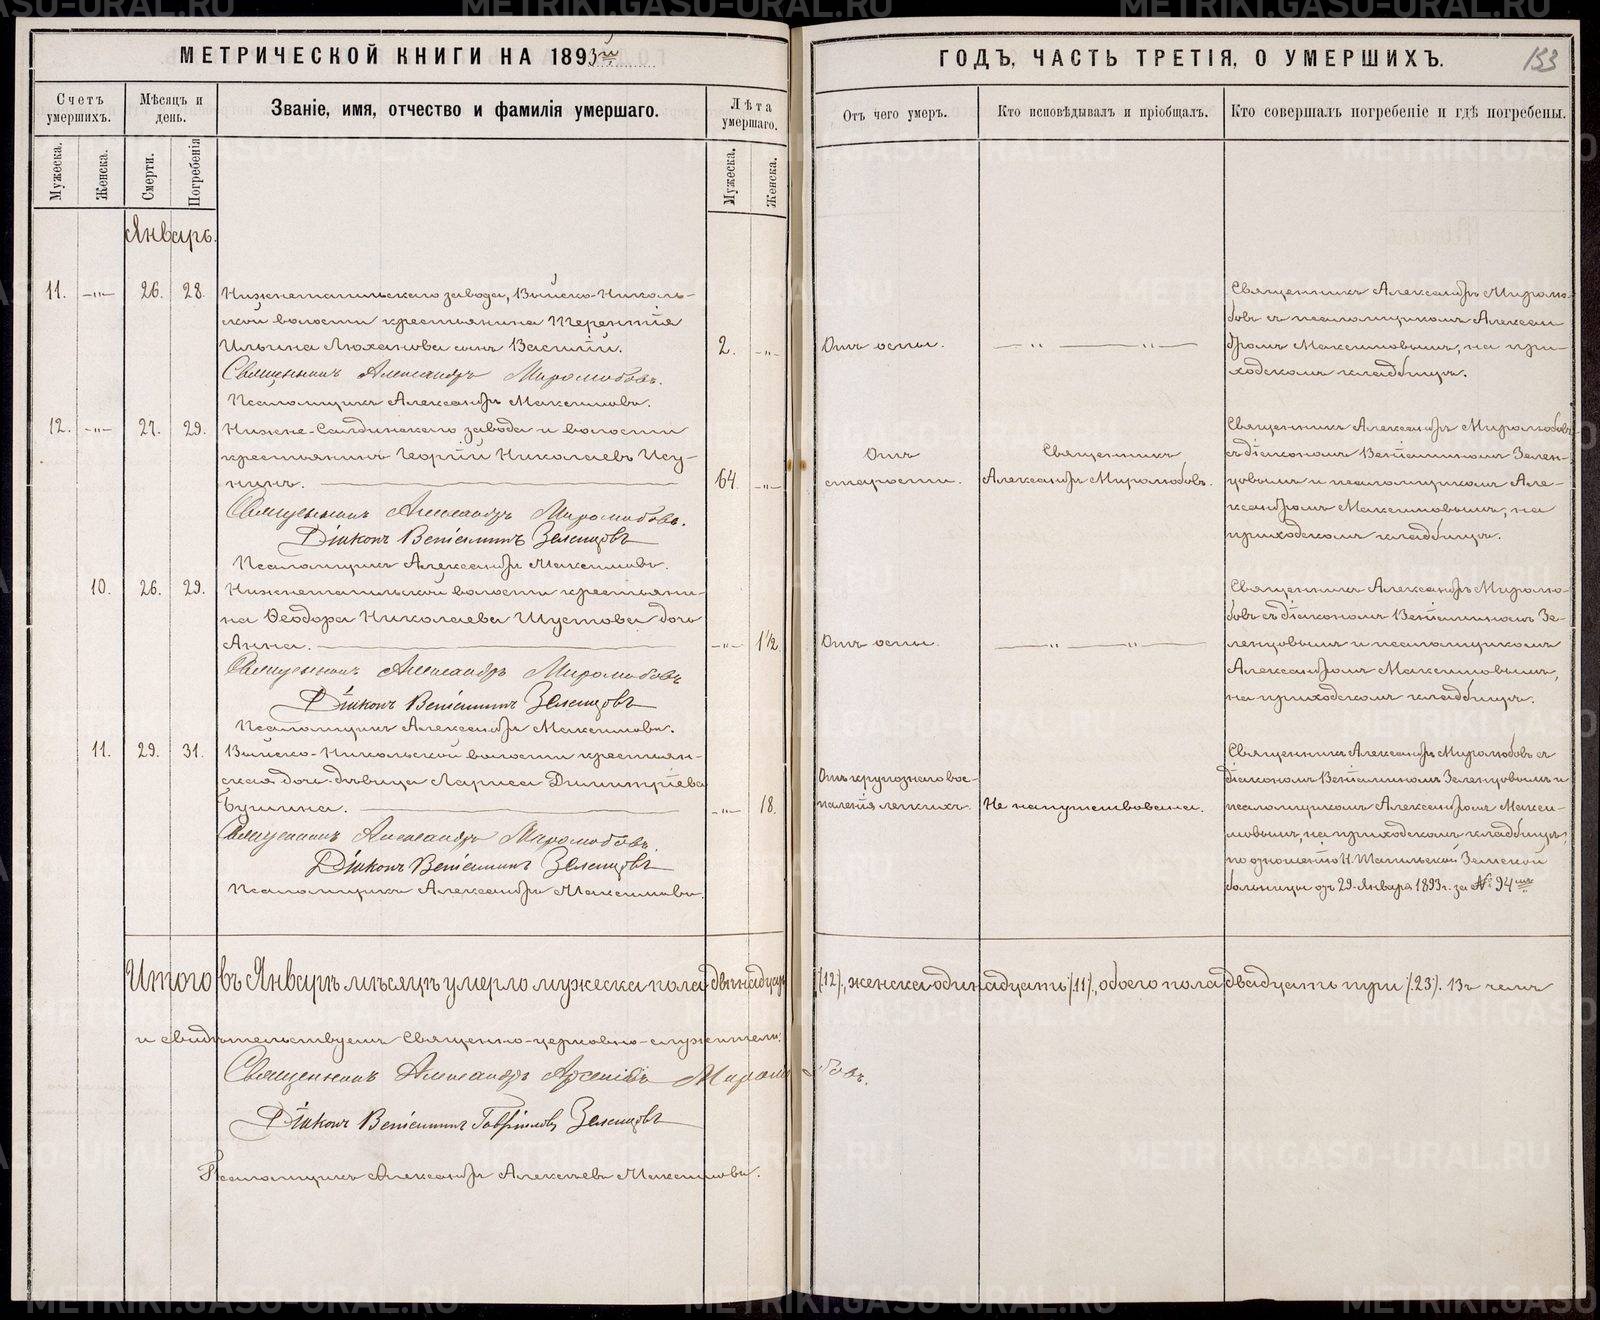 МЕТРИЧЕСКОЙ КНИГИ НА 1893й
ГОДЪ, ЧАСТЬ ТРЕТІЯ, О УМЕРШИХЪ.
153
Счетъ умершихъ.
Мѣсяцъ и день.
Званіе, имя, отчество и фамилія умершаго.
Лѣта умершаго.
Отъ чего умеръ.
Кто исповѣдывалъ и пріобщалъ.
Кто совершалъ погребеніе и гдѣ погребены.
Мужеска.
Женска.
Смерти.
Погребенія
Мужеска.
Женска.
Январь.
11. -"- 26. 28.
Нижнетагильскаго завода, Выйско-Николь-
ской волости крестьянина Терентія
Ильина Люханова сынъ Василій.
Священникъ Александръ Миролюбовъ.
Псаломщикъ Александръ Максимовъ.
2. -"-
Отъ оспы.
Священникъ Александръ Миролю-
бовъ съ псаломщикомъ Алексан-
дромъ Максимовымъ, на при-
ходскомъ кладбищѣ.
12. -"- 27. 29.
Нижне-Салдинскаго завода и волости
крестьянинъ Георгій НиколаевъИсу-
пинъ.
Священникъ Александръ Миролюбовъ.
Діаконъ Веніаминъ Зеленцовъ
Псаломщикъ Александръ Максимовъ.
64. -"-
Отъ
старости.
Священникъ
Александръ Миролюбовъ.
Священникъ Александръ Миролюбовъ
съ діакономъ Веніаминомъ Зелен-
цовымъ и псаломщикомъ Але-
ксандромъ Максимовымъ, на
приходскомъ кладбищѣ.
10. 26. 29.
Нижнетагильской волости крестьяни-
на Ѳеодора Николаева Шустова дочь
Анна.
Священникъ Александръ Миролюбовъ
Діаконъ Веніаминъ Зеленцовъ
Псаломщикъ Александръ Максимовъ.
-"- 1½
Отъ оспы.
Священникъ Александръ Миролю-
бовъ съ діакономъ Веніаминомъ Зе-
ленцовымъ и псаломщикомъ
Александромъ Максимовымъ,
на приходскомъ кладбищѣ.
11. 29. 31.
Выйско-Никольской волости крестьян-
ская дочь дѣвица Лариса Димитріева
Бушина.
Священникъ Александръ Миролюбовъ.
Діаконъ Веніаминъ Зеленцовъ
Псаломщикъ Александръ Максимовъ.
-"- 18.
Отъ крупознаго вос-
паленія легкихъ.
Не напутствована.
Священникъ Александръ Миролюбовъ съ
діакономъ Веніаминомъ Зеленцовымъ и
псаломщикомъ Александромъ Макси-
мовымъ, на приходскомъ кладбищѣ,
по отношенію Н.Тагильской Земской
больницы отъ 29. Января 1893 г. за № 94мъ
Итого въ Январѣ мѣсяцѣ умерло мужеска пола двѣнадцать (12)., женска одиннадцать (11)., обоего пола двадцать три (23). Въ чемъ
и свидѣтельствуемъ Священно-церковно-служители:
Священникъ Александръ Арсеніевъ Миролюбовъ.
Діаконъ Веніаминъ Гавріиловъ Зеленцовъ
Псаломщикъ Александръ Алексѣевъ Максимовъ.
METRIKI.GASO-URAL.RU